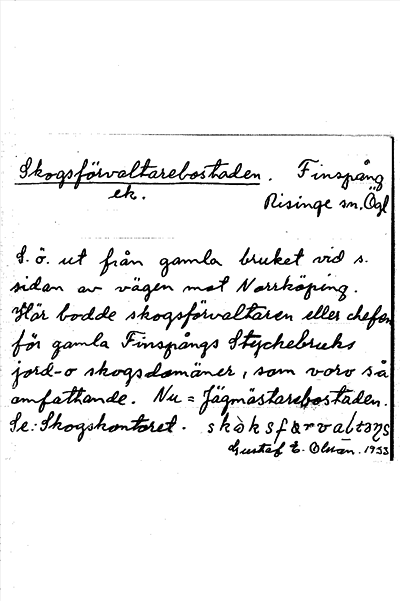 Skogsförvaltarebostaden. Finspång
ek. Risinge sn. Ögl
S. ö. ut från gamla bruket vid s.
sidan av vägen mot Norrköping.
Här bodde skogsförvaltaren eller chefen
för gamla Finspångs Styckebruks
jord- o skogsdomäner, som voro så
omfattande. Nu = Jägmästarebostaden.
Se: Skogskontoret.
Gustaf E. Olsson. 1933